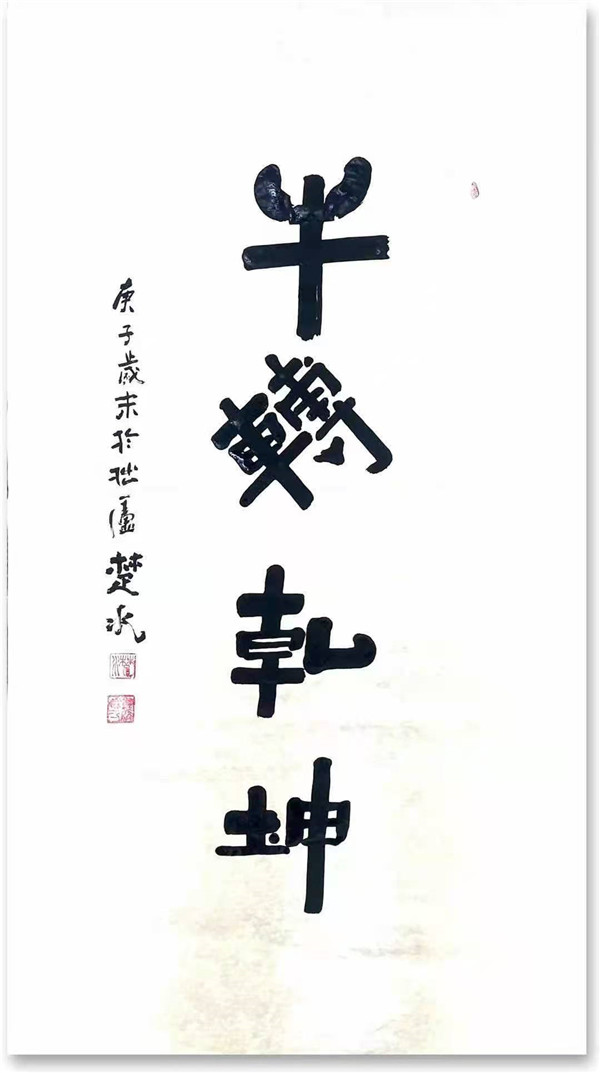 牛轉乾坤
庚子歲末於拙廬楚